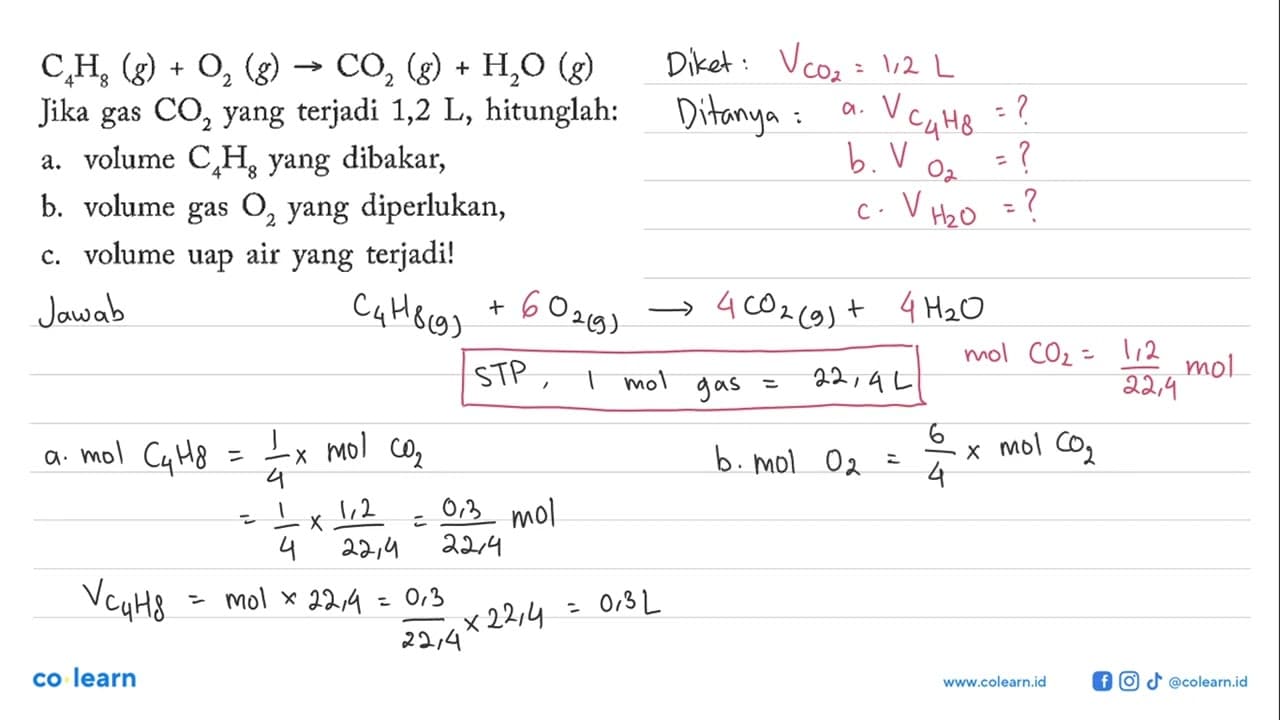 C₄H₈ (g) + O₂ (g) → CO₂ (g) + H₂O (g)
Jika gas CO₂ yang terjadi 1,2 L, hitunglah:
a. volume C₄H₈ yang dibakar,
b. volume gas O₂ yang diperlukan,
c. volume uap air yang terjadi!
Diket : V CO₂ = 1,2 L
Ditanya : a. V C₄H₈ = ?
b. V O₂ = ?
c. V H₂O = ?
Jawab
C₄H₈(g) + 6 O₂(g) → 4 CO₂(g) + 4 H₂O
STP, 1 mol gas = 22,4 L
mol CO₂ = 1,2/22,4 mol
a. mol C₄H₈ = 1/4 × mol CO₂
= 1/4 × 1,2/22,4 = 0,3/22,4 mol
V C₄H₈ = mol × 22,4 = 0,3/22,4 × 22,4 = 0,3 L
b. mol O₂ = 6/4 × mol CO₂
co learn
www.colearn.id
@colearn.id